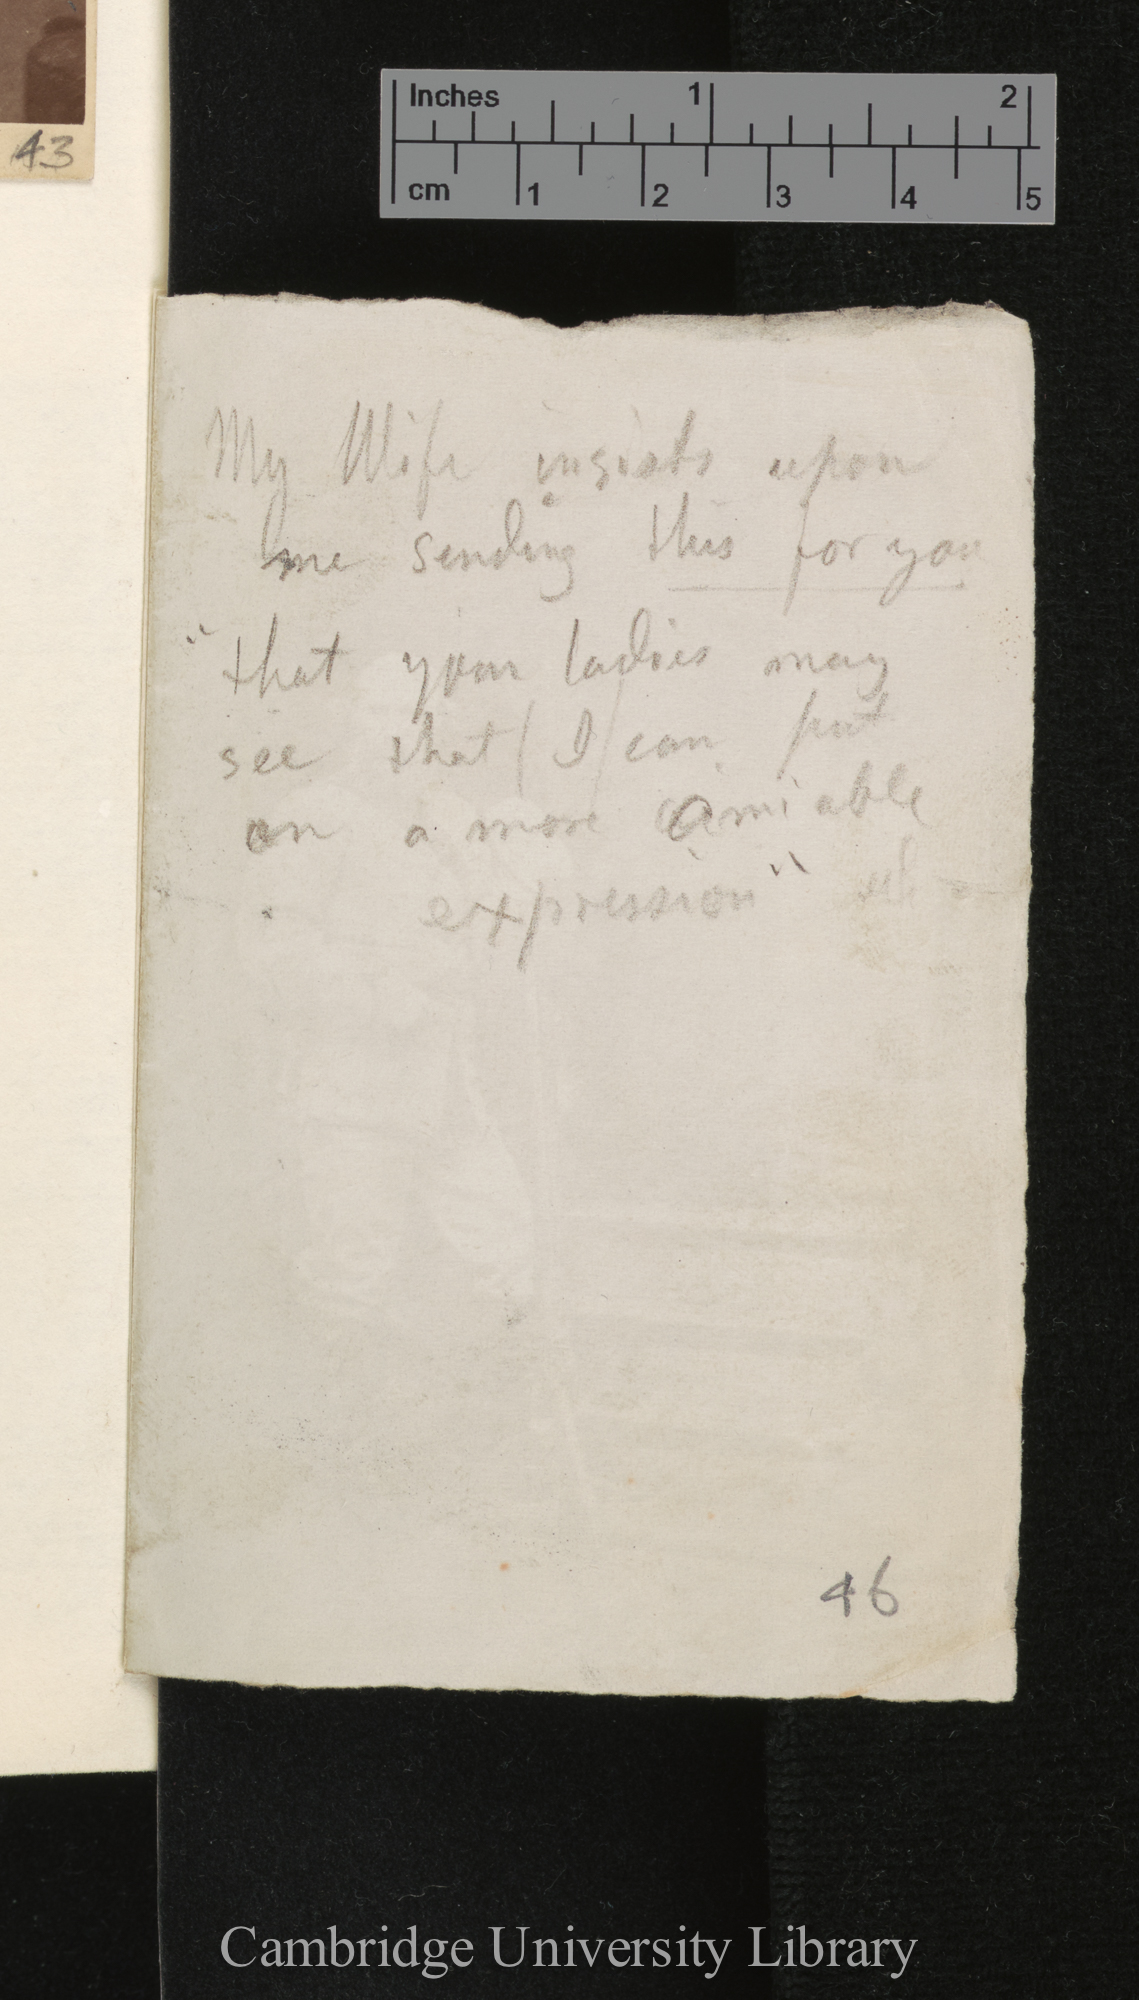 43
Inches 1 2
cm 1 2 3 4 5
My Wife insists upon
me sending this for you
"that your ladies may
see that (I) can put
on a more amiable
expression"
46
Cambridge University Library